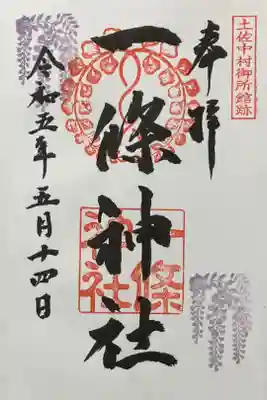 土佐中村御所館跡
奉拝
一條神社
一條神社
令和五年五月十四日